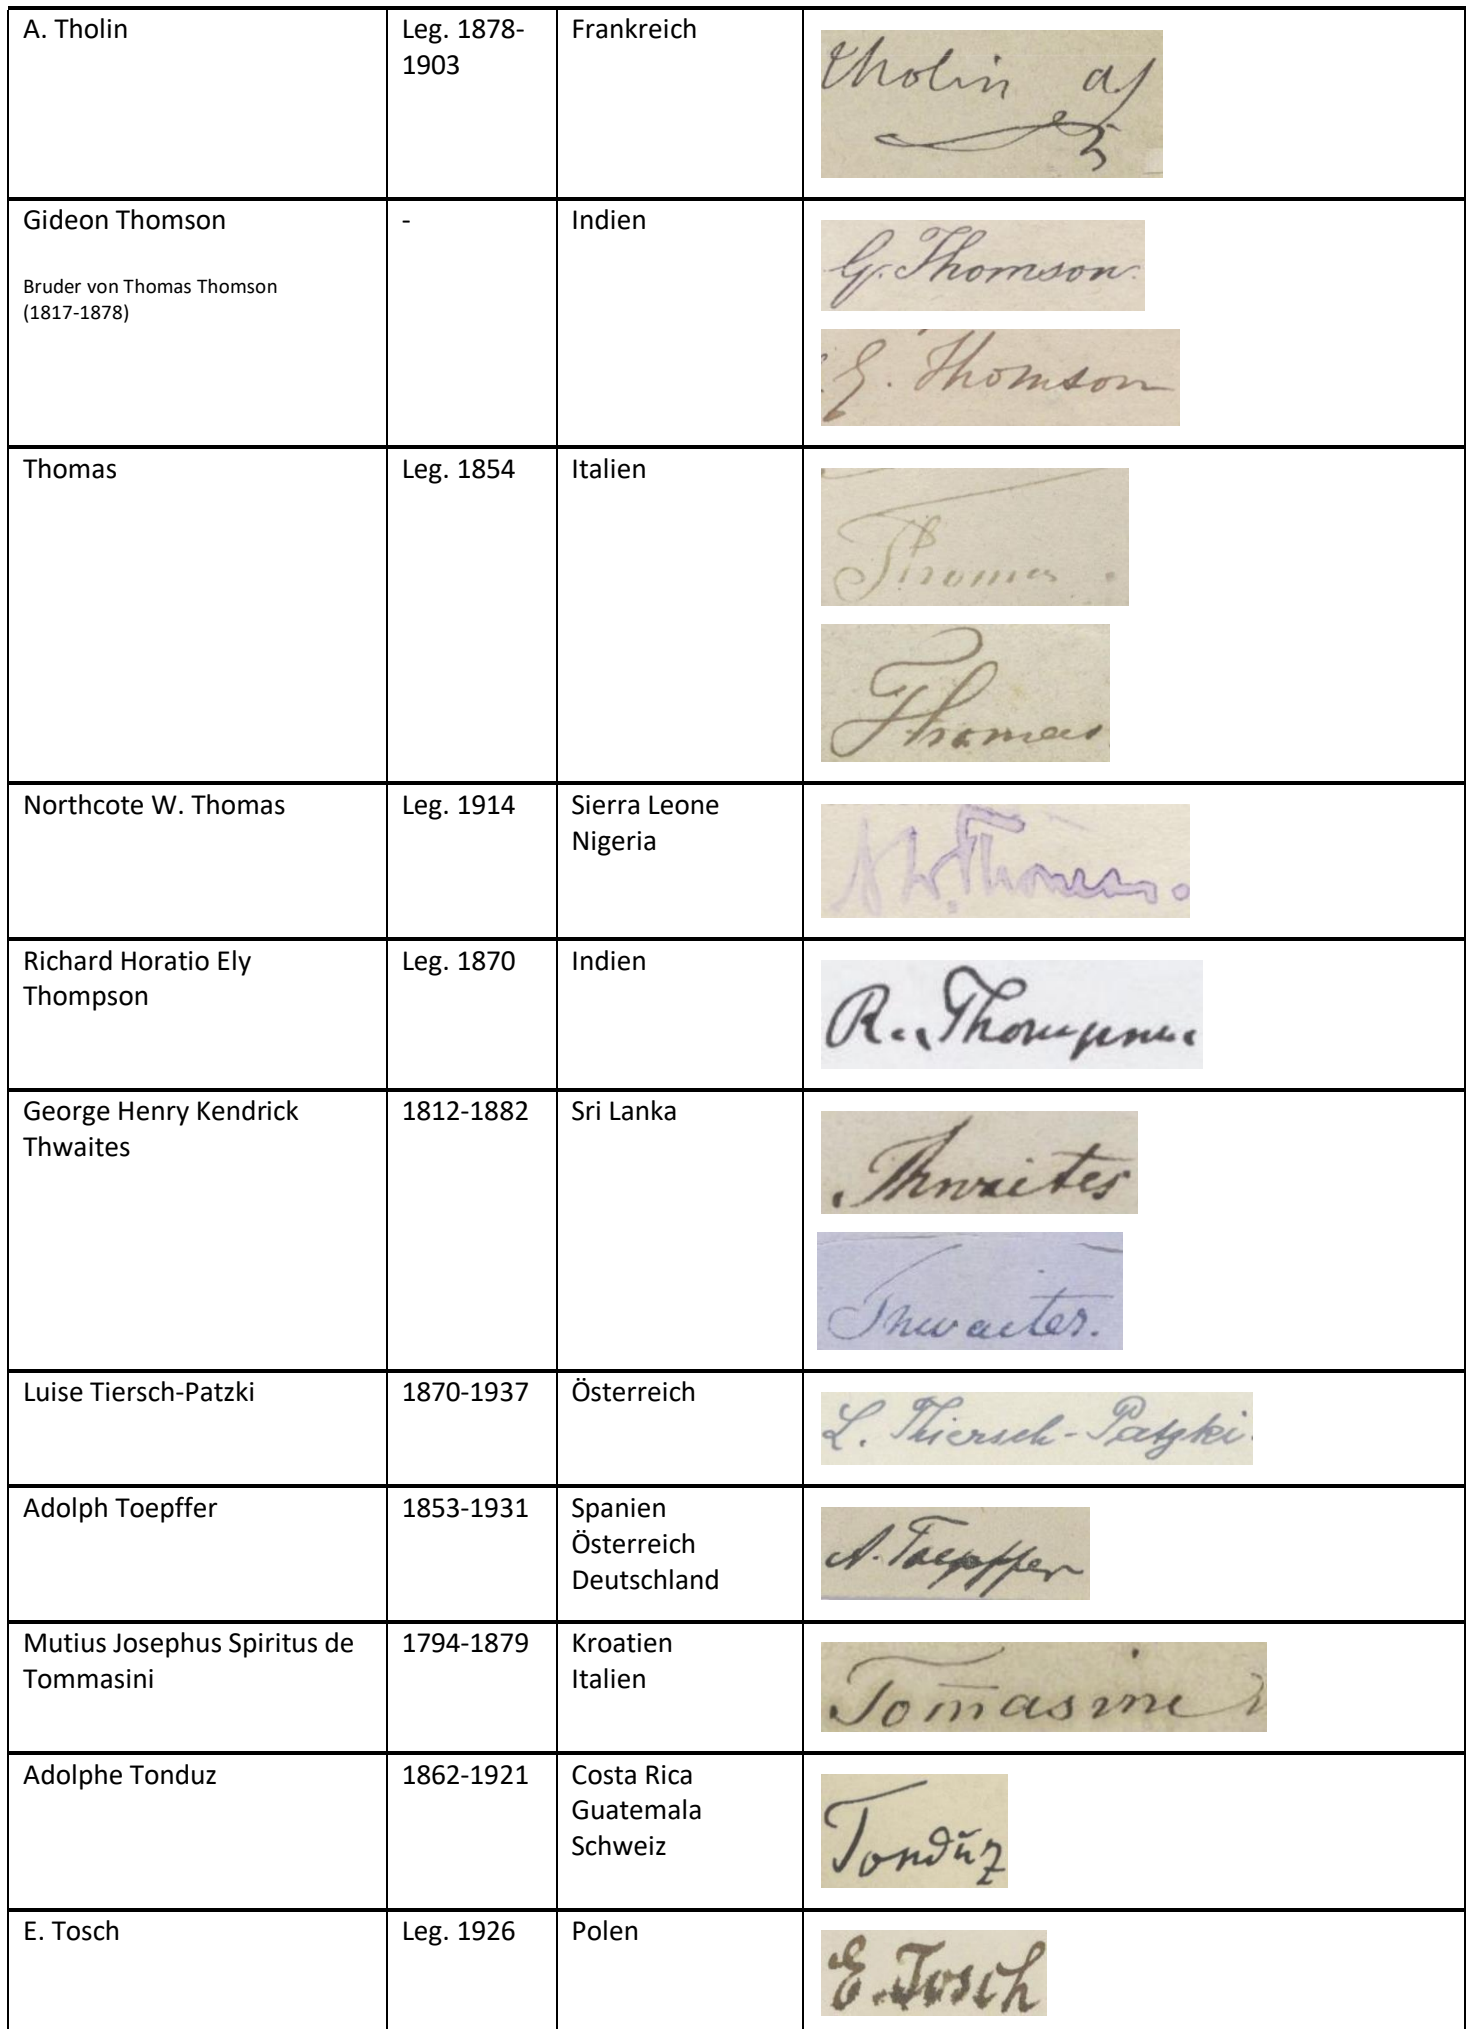 A. Tholin
Leg. 1878-
1903
Frankreich
Tholin A
Gideon Thomson
-
Indien
Bruder von Thomas Thomson
(1817-1878)
G. Thomson.
G. Thomson
Thomas
Leg. 1854
Italien
Thomas.
Thomas
Northcote W. Thomas
Leg. 1914
Sierra Leone
Nigeria
N W. Thomas.
Richard Horatio Ely
Thompson
Leg. 1870
Indien
R. Thompson.
George Henry Kendrick
Thwaites
1812-1882
Sri Lanka
Thwaites
Thwaites.
Luise Tiersch-Patzki
1870-1937
Österreich
L. Thiersch-Patzki.
Adolph Toepffer
1853-1931
Spanien
Österreich
Deutschland
A. Toepffer
Mutius Josephus Spiritus de
Tommasini
1794-1879
Kroatien
Italien
Tom̄asini
Adolphe Tonduz
1862-1921
Costa Rica
Guatemala
Schweiz
Tonduz
E. Tosch
Leg. 1926
Polen
E. Tosch